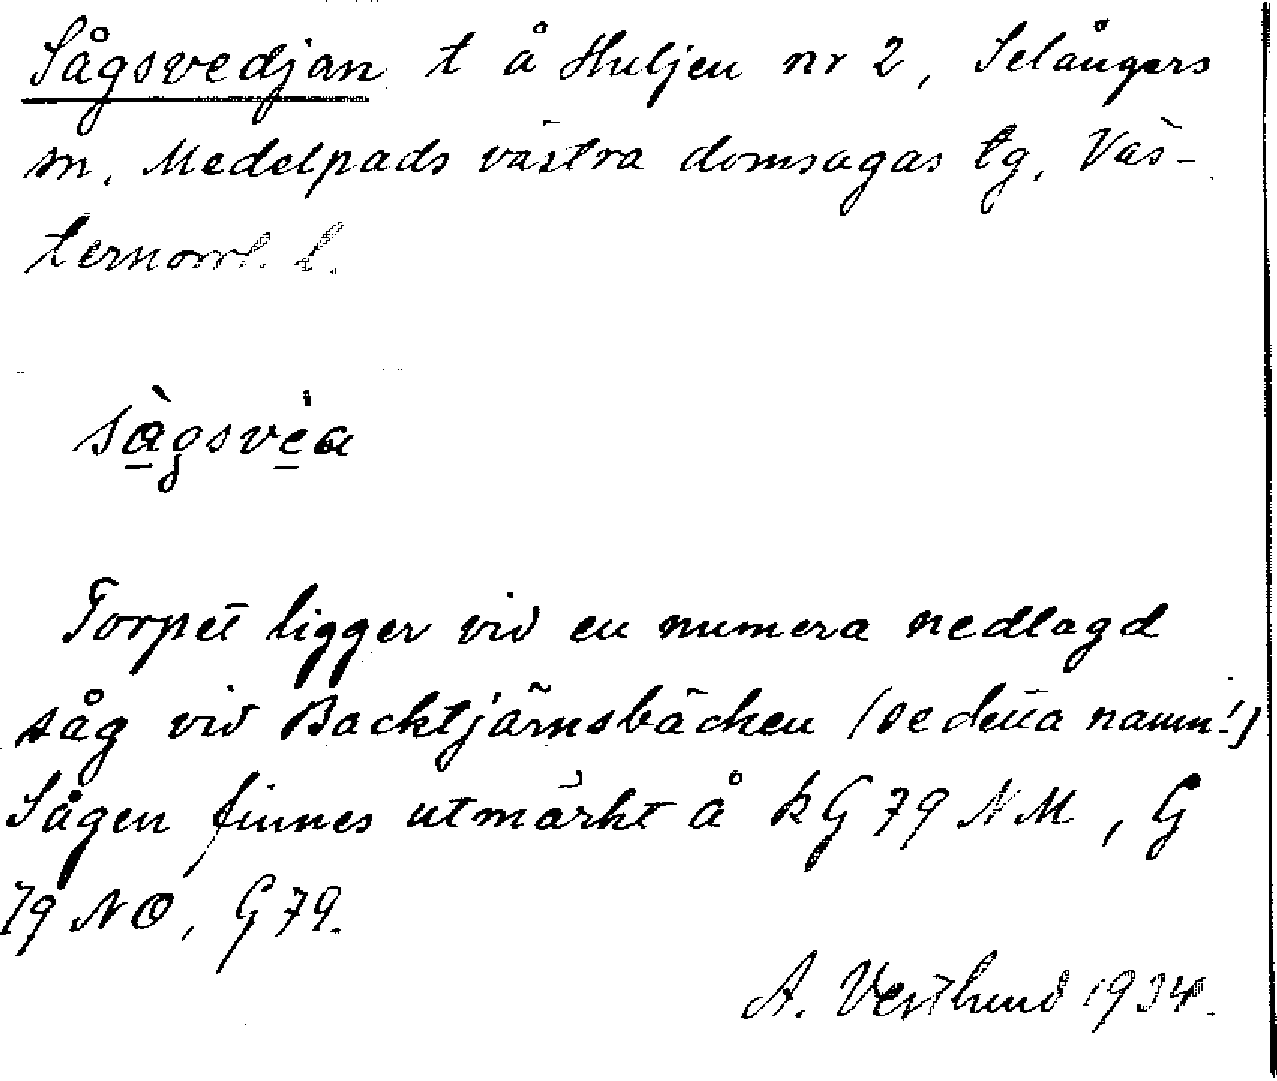 Sågsvedjan t å Huljen nr 2, Selångers
sn, Medelpads västra domsagas tg, Väs-
ternorrl. l.
sàgsvèa
Torpet ligger vid en numera nedlagd
såg vid Backtjärnsbäcken (se detta namn!)
Sågen finnes utmärkt å kG 79 NM, G
79 NO, G 79.
A. Vestlund 1934.